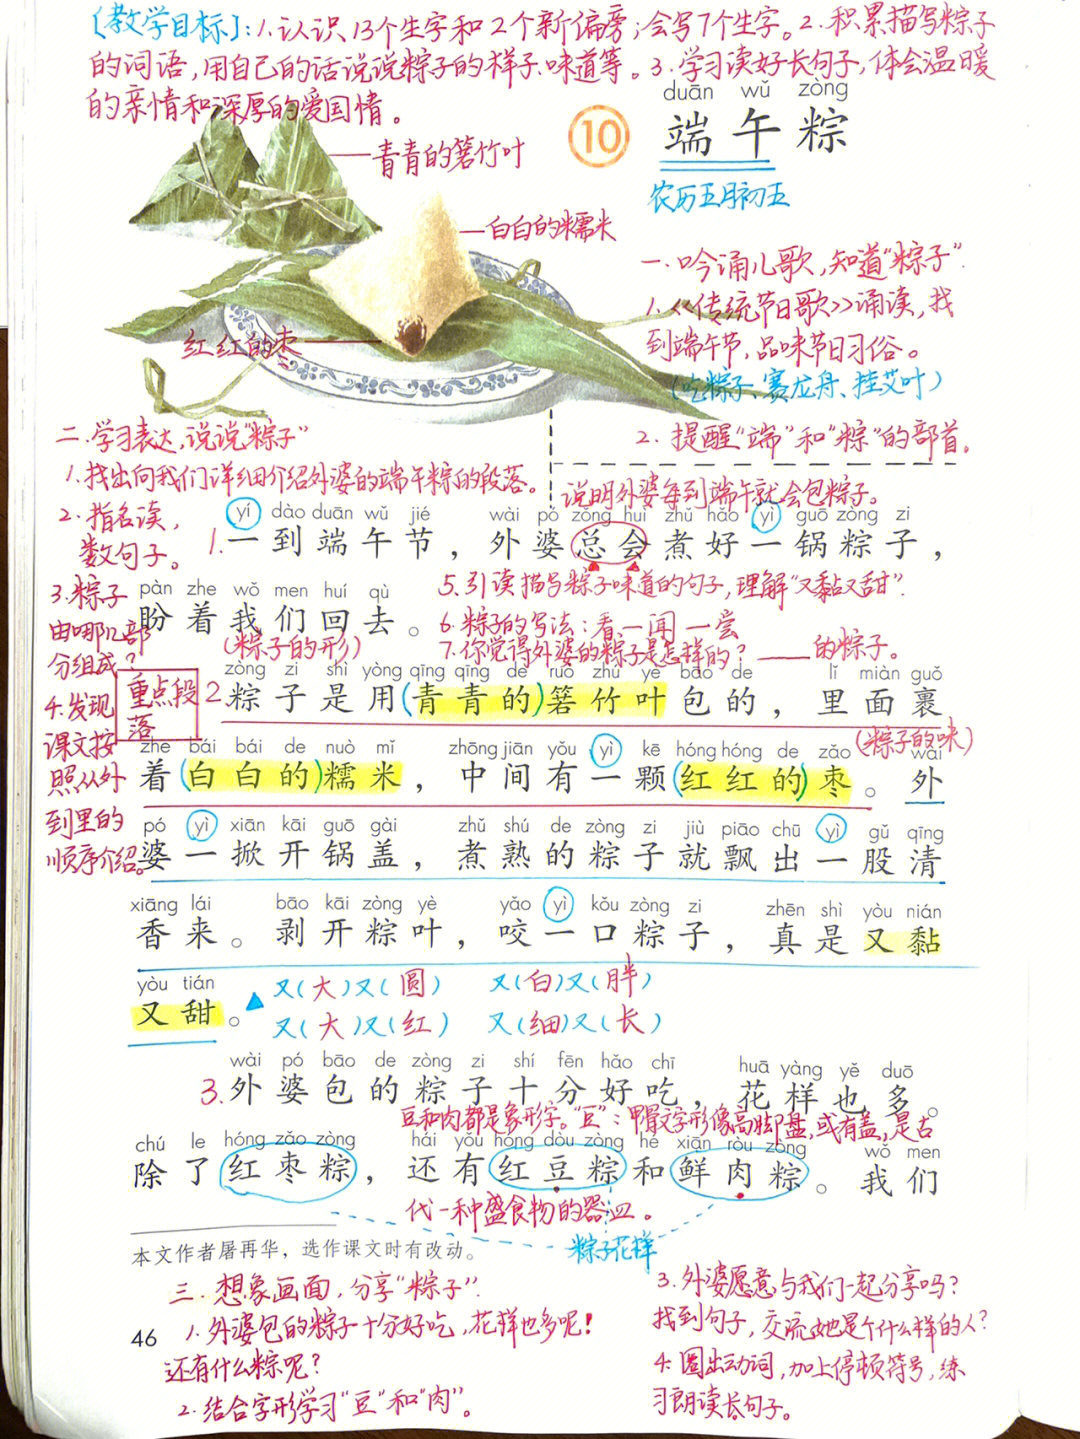 〔教学目标〕:1.认识13个生字和2个新偏旁;会写7个生字。2.积累描写粽子
的词语,用自己的话说说粽子的样子、味道等。3.学习读好长句子,体会温暖
的亲情和深厚的爱国情。
duān wǔ zòng
10 端午粽
农历五月初五
青青的箬竹叶
白白的糯米
红红的枣
一.吟诵儿歌,知道"粽子".
1.《传统节日歌》诵读,找
到端午节,品味节日习俗。
(吃粽子、赛龙舟、挂艾叶)
2.提醒"端"和"粽"的部首。
二.学习表达,说说"粽子"
1.找出向我们详细介绍外婆的端午粽的段落。
说明外婆每到端午就会包粽子。
2.指名读,
数句子。
yí dào duān wǔ jié wài pó zǒng huì zhǔ hǎo yì guō zòng zi
1.一到端午节,外婆总会煮好一锅粽子,
3.粽子
由哪几部
分组成?
5.引读描写粽子味道的句子,理解"又黏又甜".
pàn zhe wǒ men huí qù
盼着我们回去。
6.粽子的写法:看一闻一尝
(粽子的形)
7.你觉得外婆的粽子是怎样的?____的粽子。
4.发现
课文按
照从外
到里的
顺序介绍。
重点段
落
zòng zi shì yòng qīng qīng de ruò zhú yè bāo de lǐ miàn guǒ
2粽子是用(青青的)箬竹叶包的,里面裹
(粽子的味)
zhe bái bái de nuò mǐ zhōng jiān yǒu yì kē hóng hóng de zǎo wài
着(白白的)糯米,中间有一颗(红红的)枣。外
pó yì xiān kāi guō gài zhǔ shú de zòng zi jiù piāo chū yì gǔ qīng
婆一掀开锅盖,煮熟的粽子就飘出一股清
xiāng lái bāo kāi zòng yè yǎo yì kǒu zòng zi zhēn shì yòu nián
香来。剥开粽叶,咬一口粽子,真是又黏
yòu tián
又甜。
又(大)又(圆) 又(白)又(胖)
又(大)又(红) 又(细)又(长)
wài pó bāo de zòng zi shí fēn hǎo chī huā yàng yě duō
3.外婆包的粽子十分好吃,花样也多。
豆和肉都是象形字。"豆":甲骨文字形像高脚盘,或有盖,是古
chú le hóng zǎo zòng hái yǒu hóng dòu zòng hé xiān ròu zòng wǒ men
除了红枣粽,还有红豆粽和鲜肉粽。我们
代一种盛食物的器皿。
粽子花样
本文作者屠再华,选作课文时有改动。
三.想象画面,分享"粽子".
1.外婆包的粽子十分好吃,花样也多呢!
还有什么粽呢?
2.结合字形学习"豆"和"肉"。
46
3.外婆愿意与我们一起分享吗?
找到句子,交流她是个什么样的人?
4.圈出动词,加上停顿符号,练
习朗读长句子。